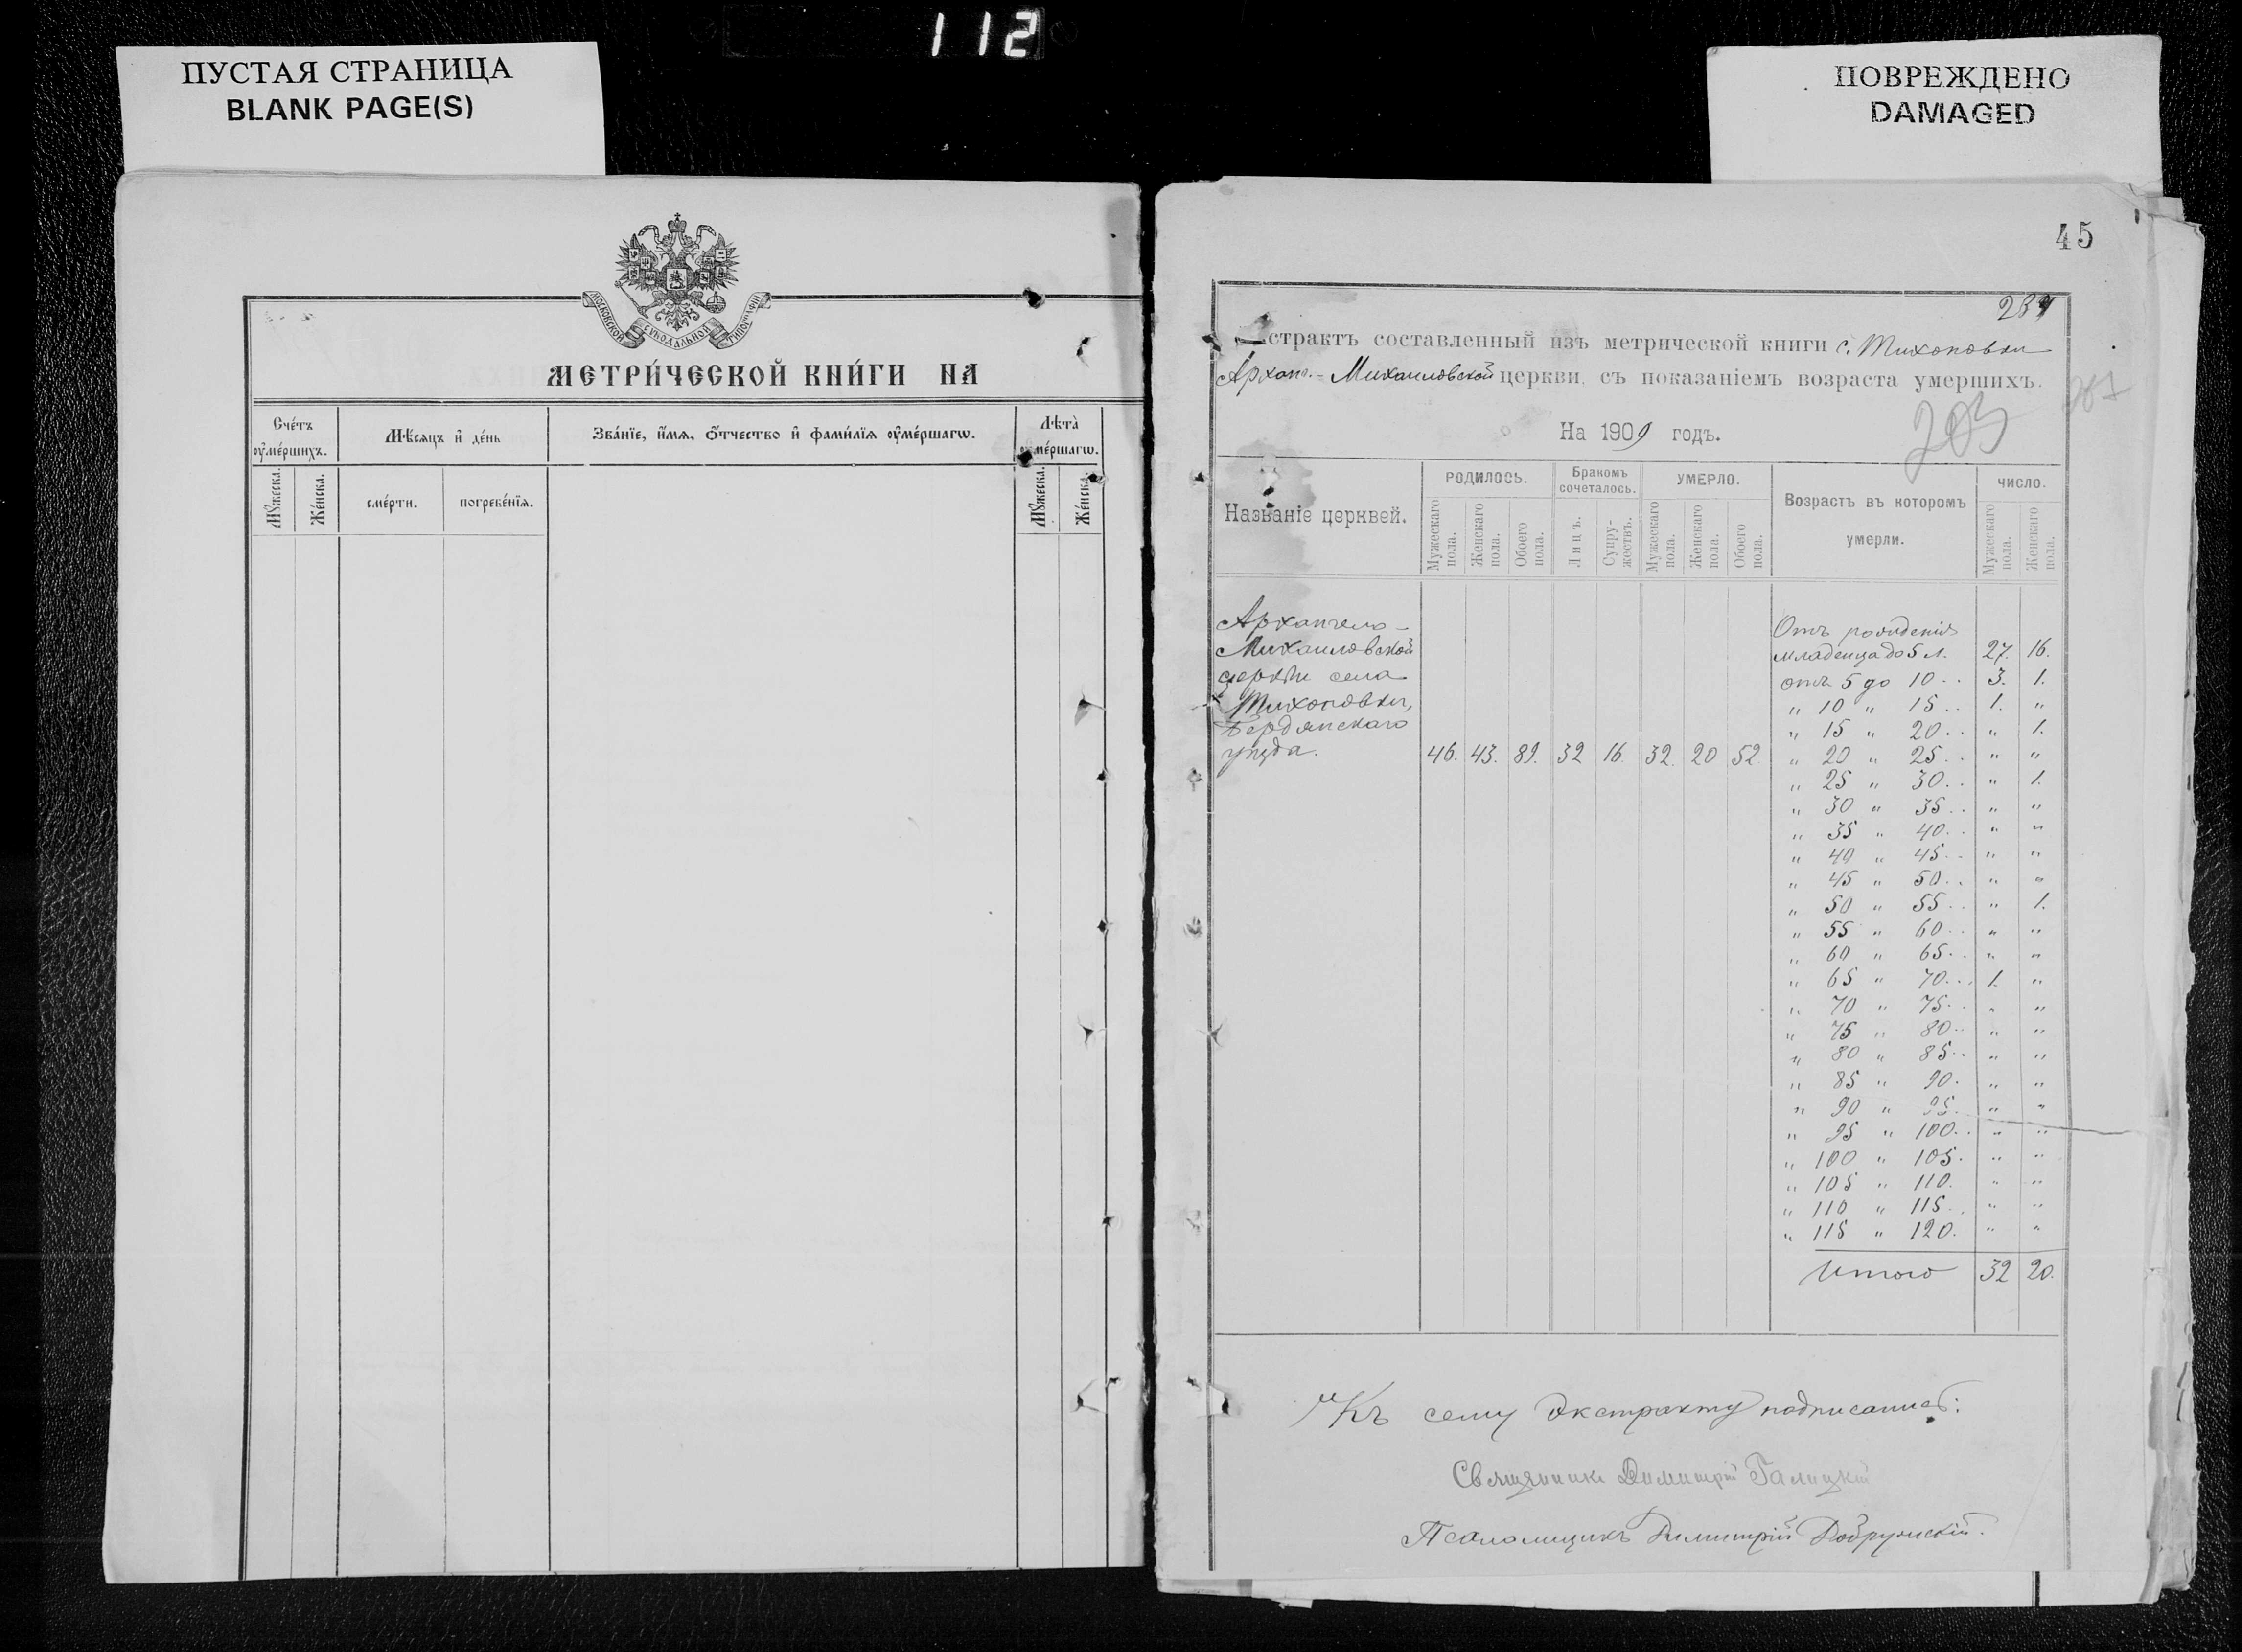 112
ПУСТАЯ СТРАНИЦА
BLANK PAGE(S)
ПОВРЕЖДЕНО
DAMAGED
МОСКОВСКОЙ СѴНОДАЛЬНОЙ ТИПОГРАФІИ
МЕТРИ́ЧЕСКОЙ КНИ́ГИ НА
Сче́тъ ᲂу҆ме́ршихъ.
Мѣ́сяцъ и҆ де́нь
Зва́нїе, и҆́мѧ, ѻ҆́тчество и҆ фами́лїѧ ᲂу҆ме́ршагѡ.
Лѣта̀ ᲂу҆ме́ршагѡ.
Мꙋ́жеска.
Же́нска.
сме́рти.
погребе́нїѧ.
Мꙋ́жеска.
Же́нска.
45
страктъ составленный изъ метрической книги с. Тихоновки
Арханг.-Михаиловской церкви, съ показаніемъ возраста умершихъ.
203
На 1909 годъ.
Названіе церквей.
РОДИЛОСЬ.
Бракомъ сочеталось.
УМЕРЛО.
Возрастъ въ которомъ умерли.
ЧИСЛО.
Мужескаго пола.
Женскаго пола.
Обоего пола.
Лицъ.
Супружествъ.
Мужескаго пола.
Женскаго пола.
Обоего пола.
Мужескаго пола.
Женскаго пола.
Архангело-
Михаиловской
церкви села
Тихоновки,
Бердянскаго
уѣзда.
46. 43. 89. 32 16. 32. 20 52.
Отъ рожденія
младенца до 5 л. 27. 16.
отъ 5 до 10.. 3. 1.
" 10 " 15.. 1. "
" 15 " 20.. " 1.
" 20 " 25.. " "
" 25 " 30.. " 1.
" 30 " 35.. " "
" 35 " 40.. " "
" 40 " 45.. " "
" 45 " 50.. " "
" 50 " 55.. " 1.
" 55 " 60.. " "
" 60 " 65.. " "
" 65 " 70... 1. "
" 70 " 75.. " "
" 75 " 80.. " "
" 80 " 85.. " "
" 85 " 90. " "
" 90 " 95. " "
" 95 " 100.. " "
" 100 " 105. " "
" 105 " 110. " "
" 110 " 115.. " "
" 115 " 120. " "
Итого 32 20.
Къ сему экстракту подписались:
Священникъ Димитрій Галицкій
Псаломщикъ Димитрій